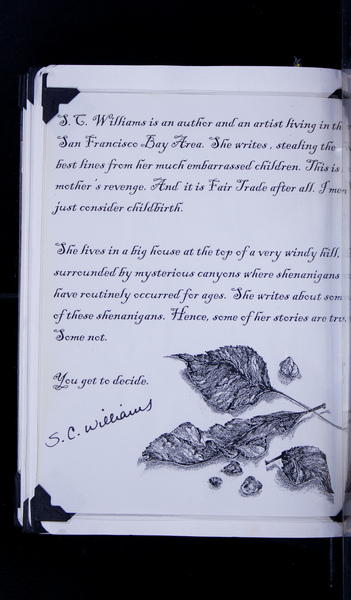 S.C. Williams is an author and an artist living in the
San Francisco Bay Area. She writes, stealing the
best lines from her much embarrassed children. This is
mother's revenge. And it is Fair Trade after all. I mean
just consider childbirth.
She lives in a big house at the top of a very windy hill,
surrounded by mysterious canyons where shenanigans
have routinely occurred for ages. She writes about some
of these shenanigans. Hence, some of her stories are true.
Some not.
You get to decide.
S.C. Williams